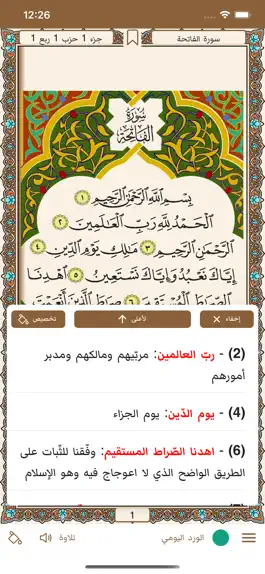 12:26
جزء 1 حزب 1 ربع 1
سورة الفاتحة
سُورَةُ
الفَاتِحَةِ
بِسْمِ اللَّهِ الرَّحْمَٰنِ الرَّحِيمِ ١
الْحَمْدُ لِلَّهِ رَبِّ الْعَالَمِينَ ٢
الرَّحْمَٰنِ الرَّحِيمِ ٣ مَالِكِ يَوْمِ الدِّينِ ٤
إِيَّاكَ نَعْبُدُ وَإِيَّاكَ نَسْتَعِينُ ٥ اهْدِنَا
الصِّرَاطَ الْمُسْتَقِيمَ ٦ صِرَاطَ الَّذِينَ أَنْعَمْتَ
إخفاء
لأعلى
تخصيص
(2) - ربّ العالمين: مربّيهم ومالكهم ومدبر
أمورهم
(4) - يوم الدّين: يوم الجزاء
(6) - اهدنا الصّراط المستقيم: وفّقنا للثّبات على
الطريق الواضح الذي لا اعوجاج فيه وهو الإسلام
1
الورد اليومي
تلاوة